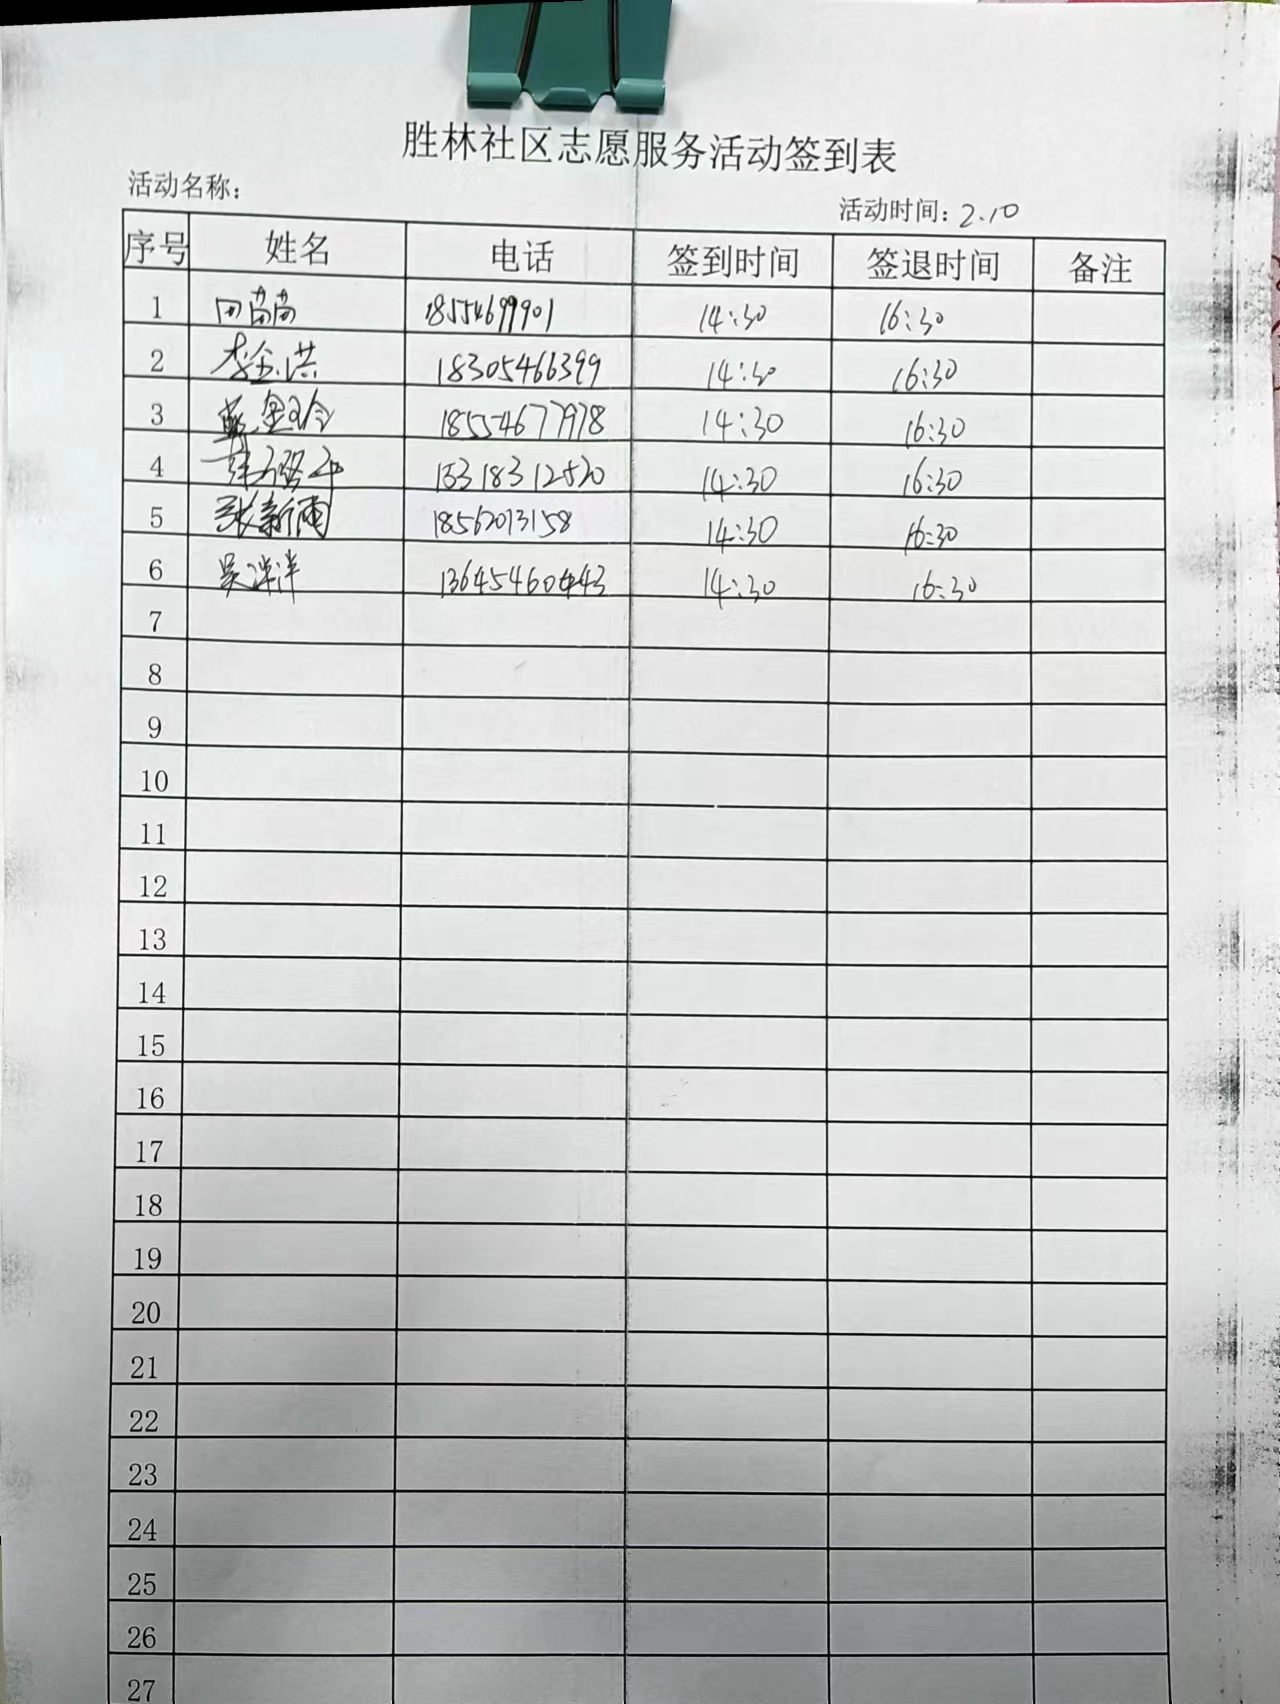 胜林社区志愿服务活动签到表
活动名称：
活动时间：2.10
序号 姓名 电话 签到时间 签退时间 备注
1 田苗苗 18554699901 14:30 16:30
2 李金洪 18305466399 14:30 16:30
3 18554677978 14:30 16:30
4 14:30 16:30
5 张新雨 18562013158 14:30 16:30
6 吴洋洋 14:30 16:30
7
8
9
10
11
12
13
14
15
16
17
18
19
20
21
22
23
24
25
26
27